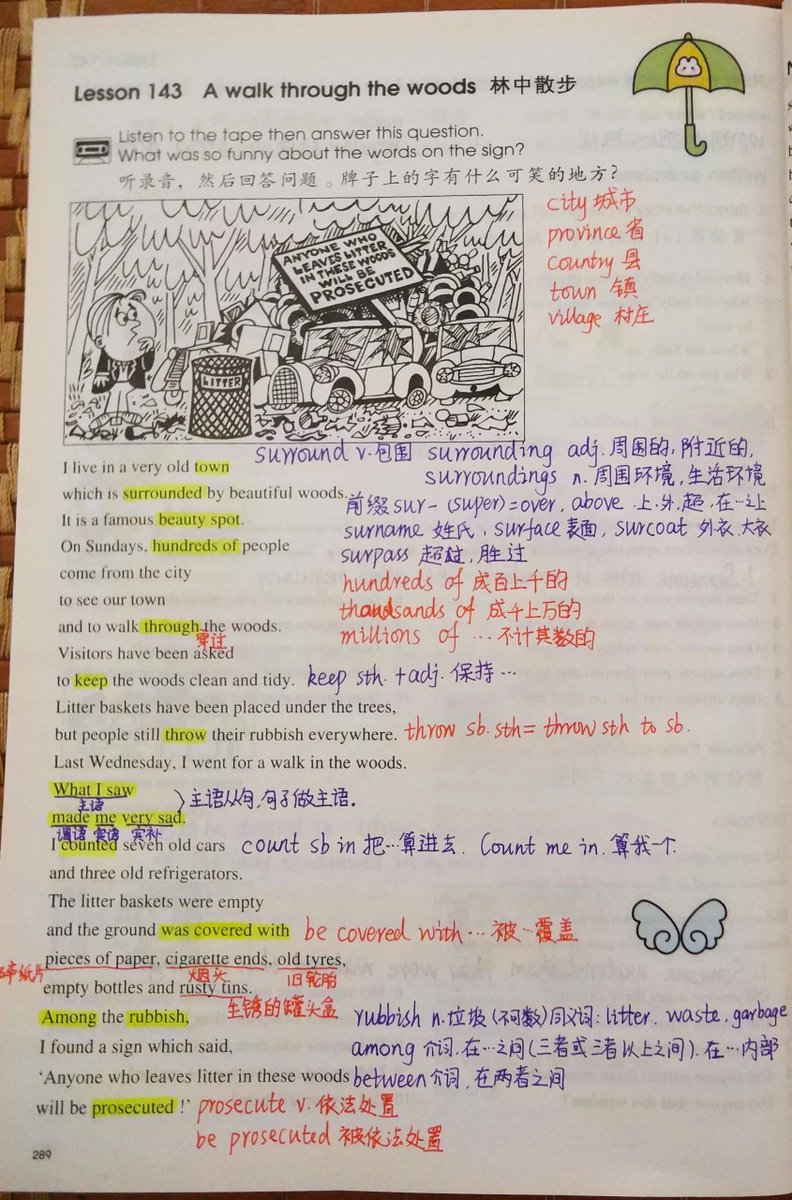 Lesson 143 A walk through the woods 林中散步
Listen to the tape then answer this question.
What was so funny about the words on the sign?
听录音，然后回答问题。牌子上的字有什么可笑的地方？
city 城市
province 省
country 县
town 镇
village 村庄
ANYONE WHO
LEAVES LITTER
IN THESE WOODS
WILL BE
PROSECUTED
LITTER
surround v. 包围 surrounding adj. 周围的, 附近的,
I live in a very old town
surroundings n. 周围环境, 生活环境
which is surrounded by beautiful woods.
前缀 sur- (super) = over, above 上.外.超, 在…之上
It is a famous beauty spot.
surname 姓氏, surface 表面, surcoat 外衣.大衣
On Sundays, hundreds of people
surpass 超过, 胜过
come from the city
hundreds of 成百上千的
to see our town
thousands of 成千上万的
and to walk through the woods.
穿过
millions of … 不计其数的
Visitors have been asked
to keep the woods clean and tidy. keep sth. + adj. 保持…
Litter baskets have been placed under the trees,
but people still throw their rubbish everywhere. throw sb. sth = throw sth to sb.
Last Wednesday, I went for a walk in the woods.
What I saw
主语
主语从句, 句子做主语.
made me very sad.
谓语 宾语 宾补
I counted seven old cars count sb in 把…算进去. Count me in. 算我一个.
and three old refrigerators.
The litter baskets were empty
and the ground was covered with be covered with … 被…覆盖
pieces of paper, cigarette ends, old tyres,
纸片 烟头 旧轮胎
empty bottles and rusty tins.
生锈的罐头盒
Among the rubbish,
rubbish n. 垃圾 (不可数) 同义词: litter. waste, garbage
I found a sign which said,
among 介词, 在…之间 (三者或三者以上之间). 在…内部
'Anyone who leaves litter in these woods between 介词, 在两者之间
will be prosecuted!' prosecute v. 依法处置
be prosecuted 被依法处置
289